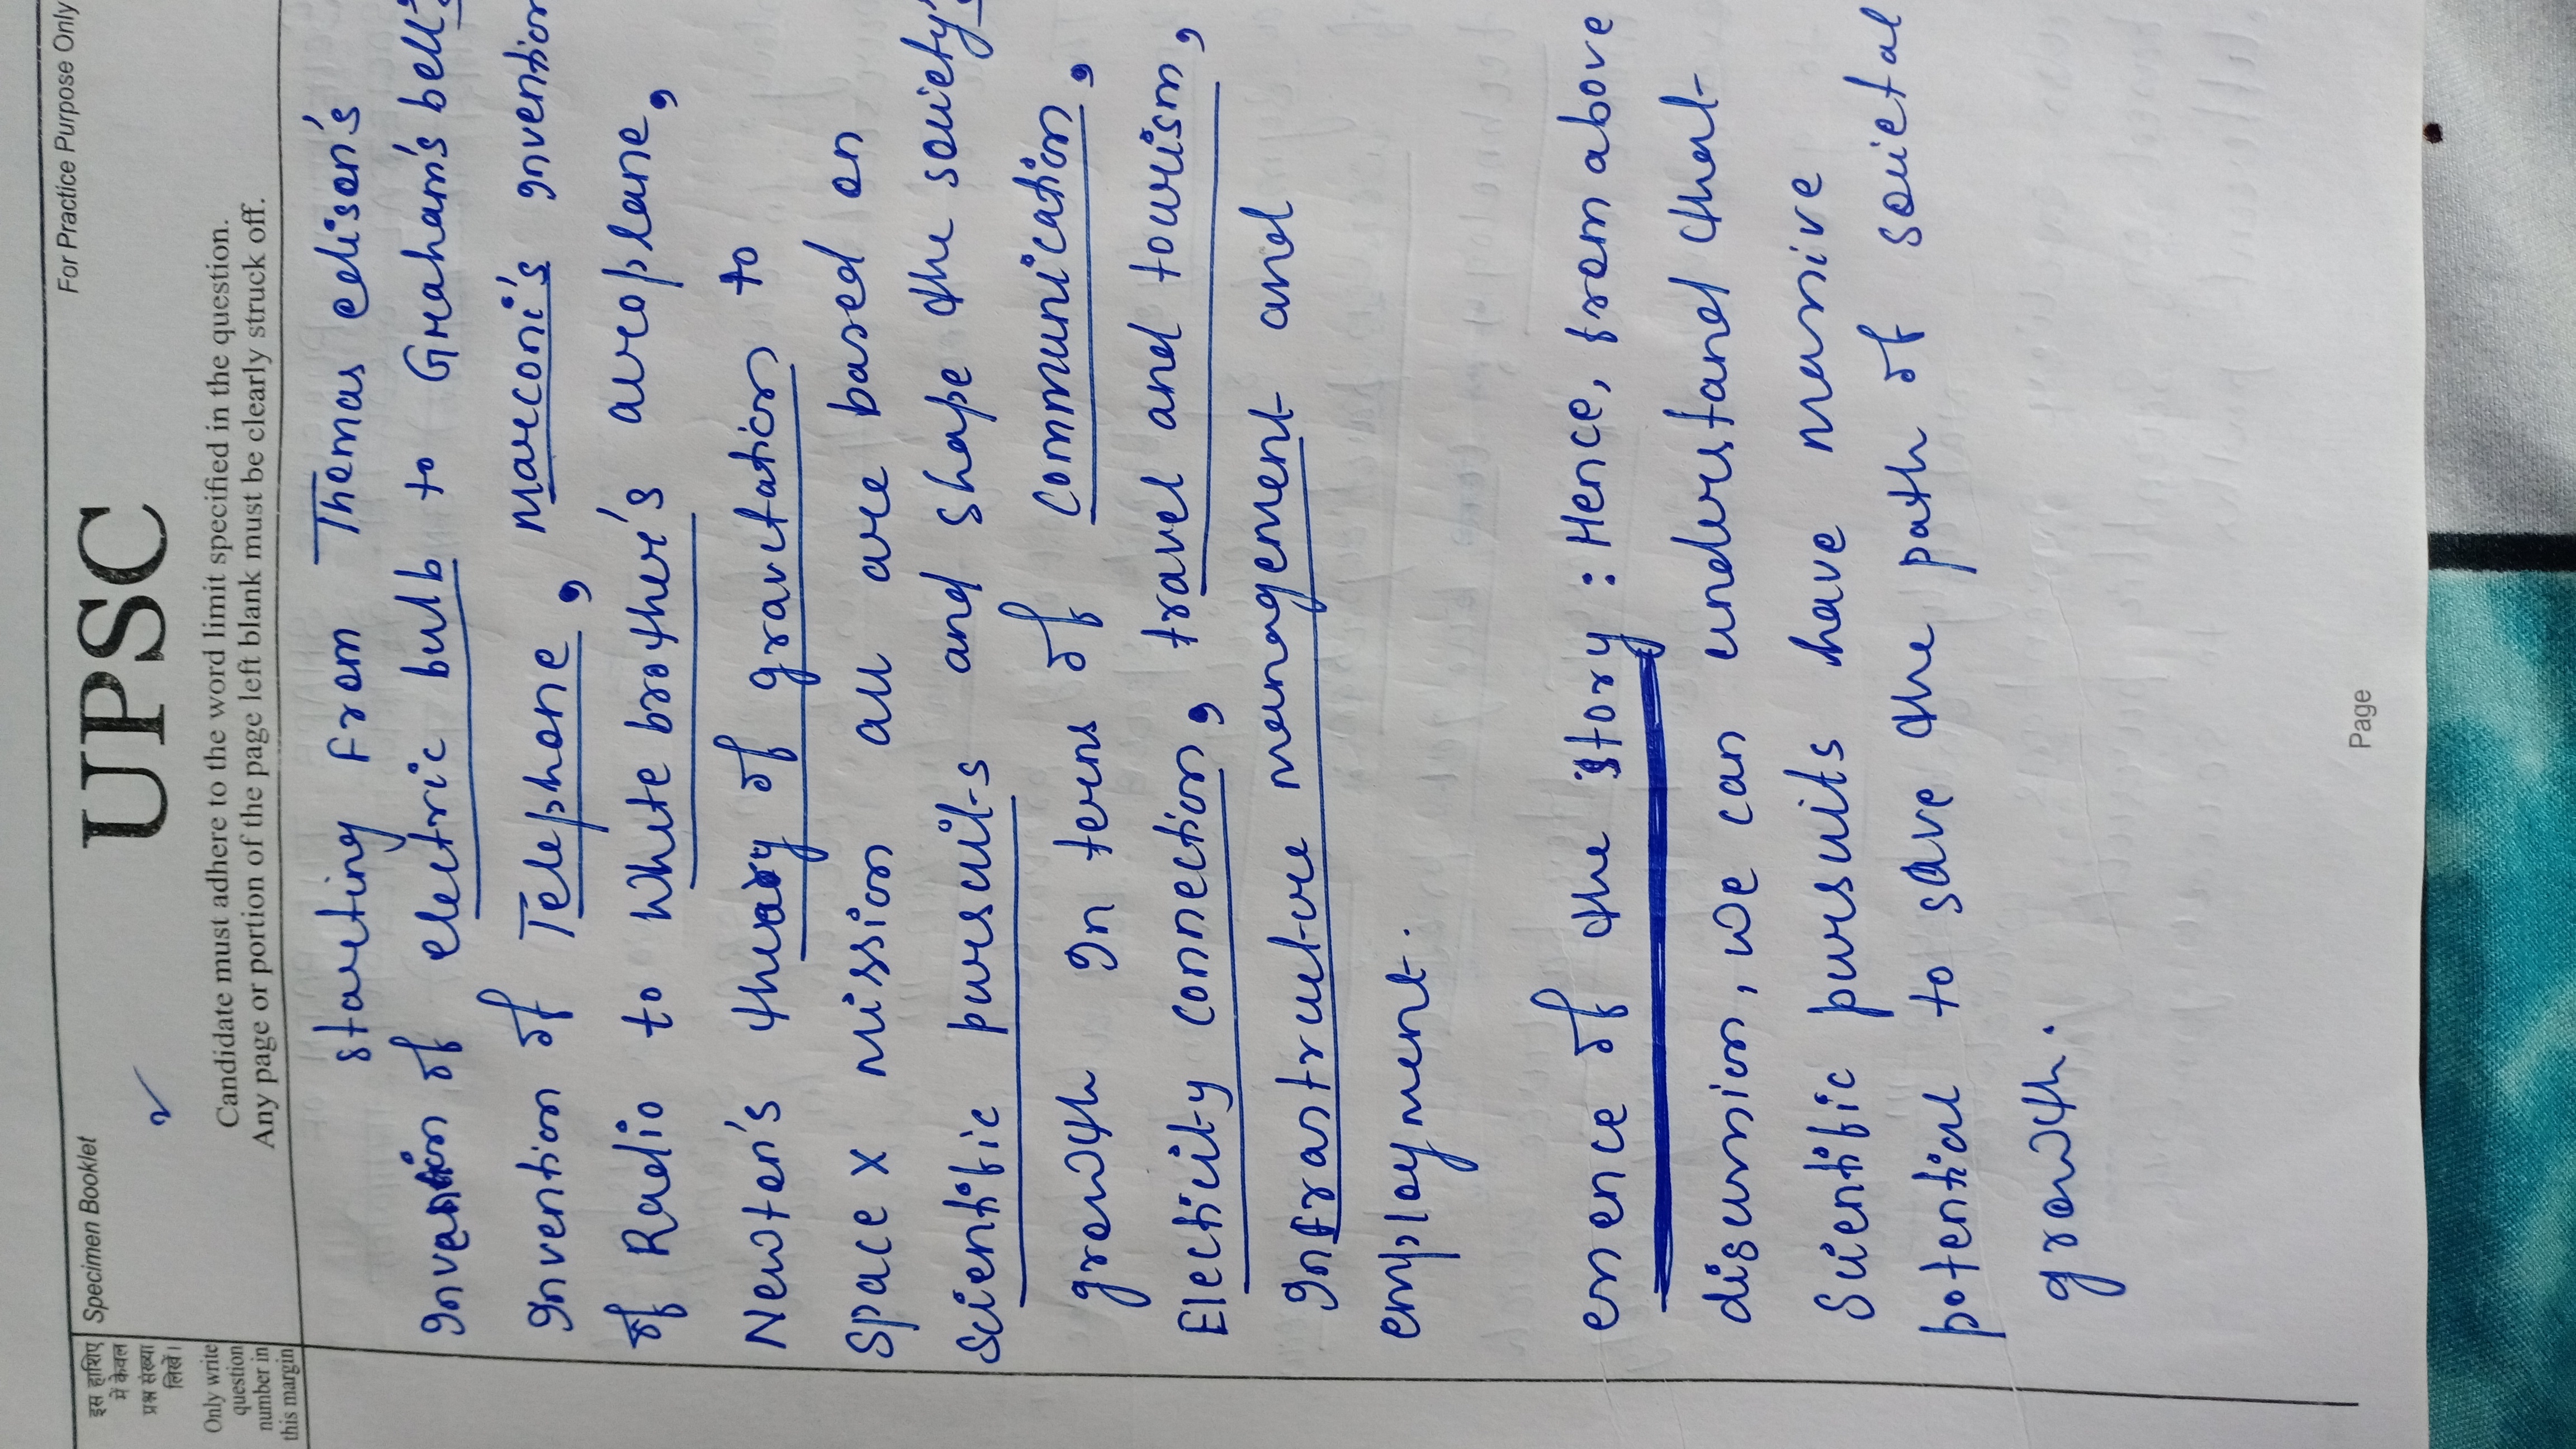 इस हाशिए
में केवल
प्रश्न संख्या
लिखें।
Specimen Booklet
For Practice Purpose Only
UPSC
Candidate must adhere to the word limit specified in the question.
Any page or portion of the page left blank must be clearly struck off.
Only write
question
number in
this margin
starting from Thomas edison's
Invention of electric bulb to Graham's bell's
Invention of Telephone, marconi's invention
of Radio to White brother's aeroplane,
Newton's theory of gravitation to
Space x mission all are based on
scientific pursuits and shape the society's
growth In terms of communication,
Electicity connection, travel and tourism,
Infrastructure management and
employment.
essence of the story : Hence, from above
discussion, we can understand that
Scientific pursuits have massive
potential to save the path of societal
growth.
Page